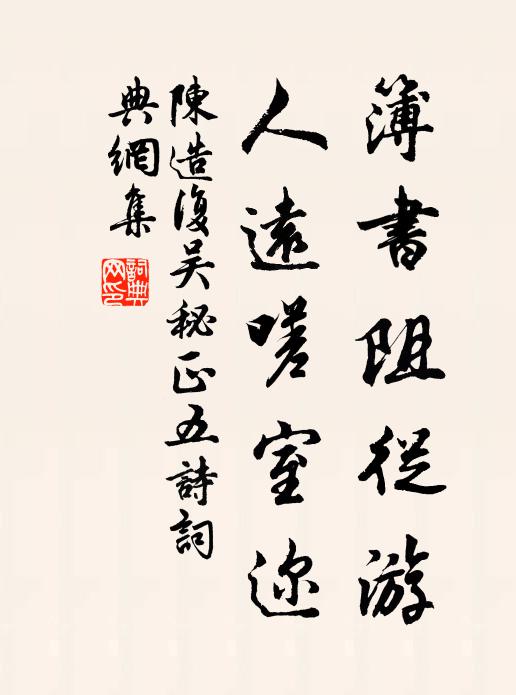 簿書阻從游
人遠嗟室迩
陳造復吴秘正五詩詞
典網集
詞典
网印